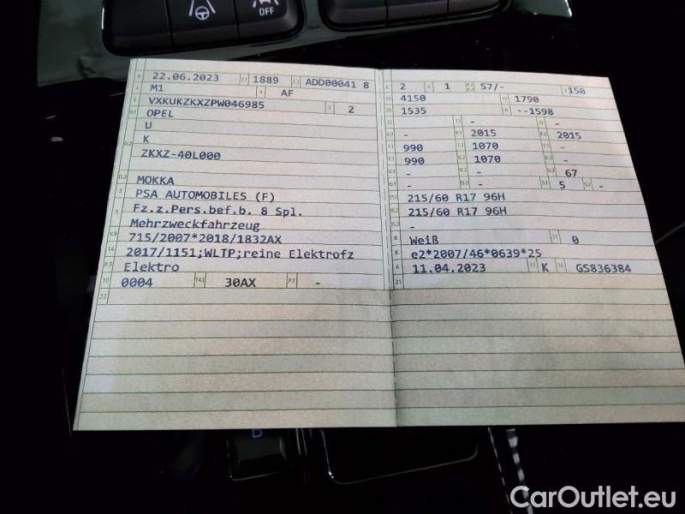 OFF
22.06.2023 1889 ADD00041 8
M1 AF
VXKUKZKXZPW046985 2
OPEL
U
K
ZKXZ-40L000
MOKKA
PSA AUTOMOBILES (F)
Fz.z.Pers.bef.b. 8 Spl.
Mehrzweckfahrzeug
715/2007*2018/1832AX
2017/1151;WLTP;reine Elektrofz
Elektro
0004 30AX -
22
2 1 57/- 150
4150 1790
1535 --1598
- -
- 2015 2015
990 1070 -
990 1070 -
- - 67
- 5 -
215/60 R17 96H
215/60 R17 96H
-
Weiß 0
e2*2007/46*0639*25
11.04.2023 K GS836384
21
D
CarOutlet.eu